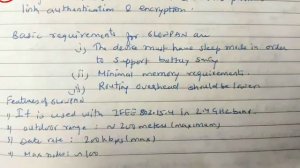 link authentication & encryption.
Basic requirements for 6LOWPAN are
i) The device must have sleep mode in order
to support battery saving
(ii) Minimal memory requirements.
iii) Routing overhead should be lower
Features of 6LoWPAN
It is used with IEEE 802.15.4 in 2.4 GHz band
outdoor range: ~ 200 meters (maximum)
Data rate: 200 kbps (max)
Max nodes ~ 100